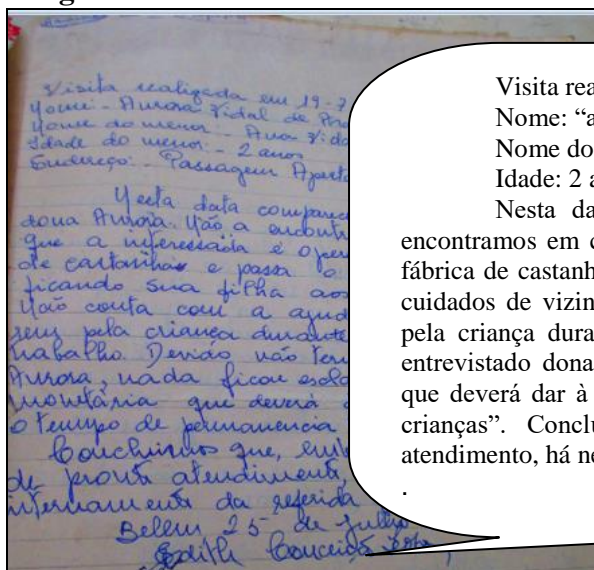 Visita realizada em 19-7
Nome:- Aurora Vidal de
Nome do menor:- Ana Vida
Idade do menor:- 2 anos
Endereço:- Passagem Aperta
Nesta data comparec
dona Aurora. Não a encont
que a interessada é oper
de castanhas e passa o
ficando sua filha aos
Não conta com a ajud
sem pela criança durante
trabalho. Devido não term
Aurora, nada ficou escla
monetária que deverá
o tempo de permanencia
Concluimos que, emb
de pronto atendimento,
internamento da referida
Belem 25 de Julho
Edith Conceição
Visita rea
Nome: “a
Nome do
Idade: 2 a
Nesta da
encontramos em c
fábrica de castanh
cuidados de vizin
pela criança dura
entrevistado dona
que deverá dar à
crianças”. Conclu
atendimento, há ne
.